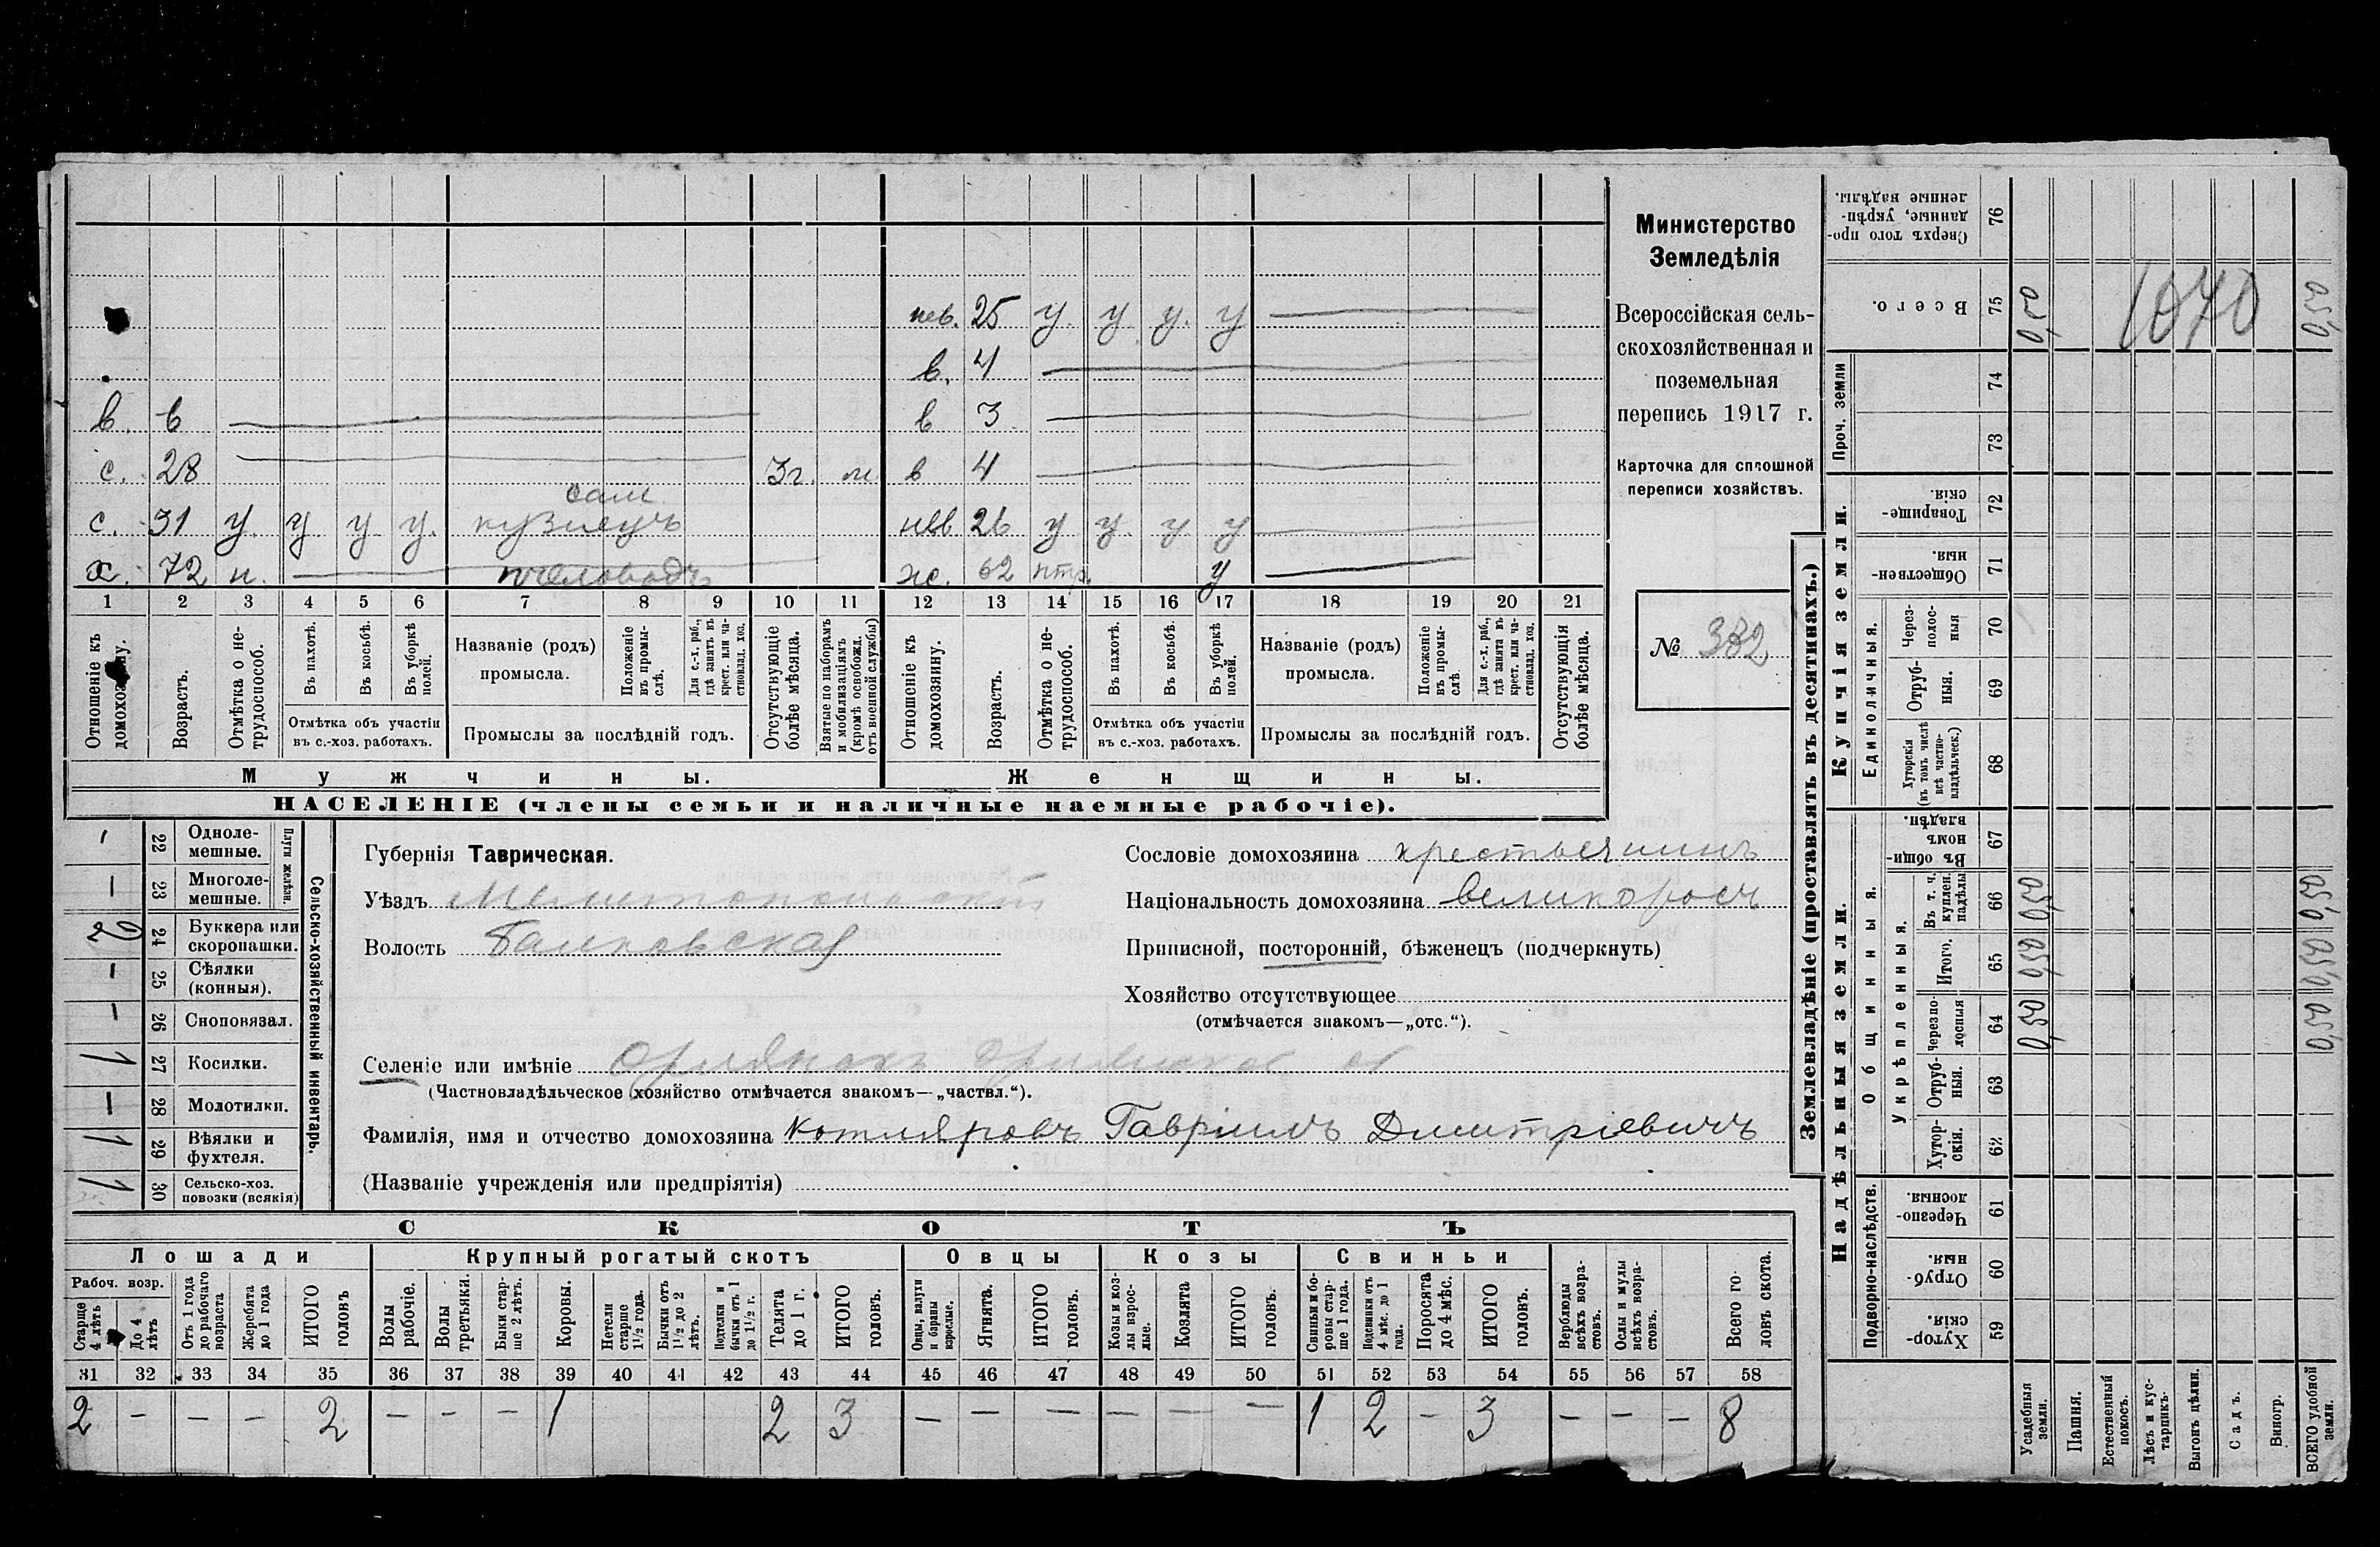 нев. 25 у. у. у. у
в. 4
в. 6
в 3
с. 28 3г. м.
в 4
сам.
с. 31 у. у у у. кузнецъ
нев 26 у у. у. у
х. 72 н. пчеловодъ
ж. 62 птр. у
1 2 3 4 5 6 7 8 9 10 11 12 13 14 15 16 17 18 19 20 21
Отношеніе къ домохозяину.
Возрастъ.
Отмѣтка о не-трудоспособ.
Въ пахотѣ.
Въ косьбѣ.
Въ уборкѣ полей.
Отмѣтка объ участіи въ с.-хоз. работахъ.
Названіе (родъ) промысла.
Положеніе въ промы-слѣ.
Для с.-х. раб., гдѣ занятъ въ крест. или ча-стновлад. хоз.
Промыслы за послѣдній годъ.
Отсутствующіе болѣе мѣсяца.
Взятые по наборамъ и мобилизаціямъ (кромѣ освобожд. отъ военной службы)
Отношеніе къ домохозяину.
Возрастъ.
Отмѣтка о не-трудоспособ.
Въ пахотѣ.
Въ косьбѣ.
Въ уборкѣ полей.
Отмѣтка объ участіи въ с.-хоз. работахъ.
Названіе (родъ) промысла.
Положеніе въ промы-слѣ
Для с.-х. раб., гдѣ занятъ въ крест. или ча-стновлад. хоз.
Промыслы за послѣдній годъ.
Отсутствующія болѣе мѣсяца.
Мужчины.
Женщины.
НАСЕЛЕНІЕ (члены семьи и наличные наемные рабочіе).
Министерство
Земледѣлія
Всероссійская сель-
скохозяйственная и
поземельная
перепись 1917 г.
Карточка для сплошной
переписи хозяйствъ.
№ 382
Сельско-хозяйственный инвентарь.
Плуги желѣзн.
22 Одноле-мешные. –
23 Многоле-мешные. –
24 Буккера или скоропашки. 2
25 Сѣялки (конныя). –
26 Сноповязал. –
27 Косилки. 1
28 Молотилки. –
29 Вѣялки и фухтеля. 1
30 Сельско-хоз. повозки (всякія) 1
Губернія Таврическая.
Уѣздъ Мелитопольскій
Волость Балковская
Сословіе домохозяина крестьянинъ
Національность домохозяина великороссъ
Приписной, посторонній, бѣженецъ (подчеркнуть)
Хозяйство отсутствующее
(отмѣчается знакомъ—„отс.“).
Селеніе или имѣніе
(Частновладѣльческое хозяйство отмѣчается знакомъ—„частвл.“).
Фамилія, имя и отчество домохозяина Котляровъ Гавріилъ Дмитріевичъ
(Названіе учрежденія или предпріятія)
СКОТЪ
Лошади
Крупный рогатый скотъ
Овцы
Козы
Свиньи
Рабоч. возр.
Старше 4 лѣтъ
До 4 лѣтъ
Отъ 1 года до рабочаго возраста
Жеребята до 1 года
ИТОГО головъ
Волы рабочіе.
Волы третьяки.
Быки стар-ше 2 лѣтъ.
Коровы.
Нетели старше 1 1/2 года.
Бычки отъ 1 1/2 до 2 лѣтъ.
Подтелки и бычки отъ 1 до 1 1/2 г.
Телята до 1 г.
ИТОГО головъ.
Овцы, валухи и бараны взрослые.
Ягнята.
ИТОГО головъ.
Козы и коз-лы взрос-лые.
Козлята
ИТОГО головъ.
Свиньи и бо-ровы стар-ше 1 года.
Подсвинки отъ 4 мѣс. до 1 года.
Поросята до 4 мѣс.
ИТОГО головъ.
Верблюды всѣхъ возра-стовъ.
Ослы и мулы всѣхъ возра-стовъ.
Всего го-ловъ скота.
31 32 33 34 35 36 37 38 39 40 41 42 43 44 45 46 47 48 49 50 51 52 53 54 55 56 57 58
2 – – – 2 – – – 1 2 3 – – – – – – 1 2 – 3 – – – 8
Землевладѣніе (проставлять въ десятинахъ.)
Купчія земли.
Надѣльныя земли.
Сверхъ того про-данные, укрѣп-ленные надѣлы. 76
Всего. 75 0,50 1070 0,50
Проч. земли
74
73
Товарище-скія. 72
Обществен-ныя. 71
Единоличныя.
Через-полос-ныя 70
Отруб-ныя. 69
Хуторскія (въ томъ числѣ всѣ частно-владѣльческ.) 68
Общинныя.
Въ общин-номъ владѣн. 67
Укрѣпленныя.
Въ т. ч. куплен. надѣлы 66 0,50 0,50
Итого. 65 0,50 0,50
Черезпо-лосныя 64 0,50 0,50
Отруб-ныя. 63
Хутор-скія. 62
Подворно-наслѣдств.
Черезпо-лосныя. 61
Отруб-ныя. 60
Хутор-скія. 59
Усадебныя земли.
Пашня.
Естественный покосъ.
Лѣсъ и кус-тарникъ.
Выгонъ цѣлин.
Садъ.
Виногр.
ВСЕГО удобной земли.